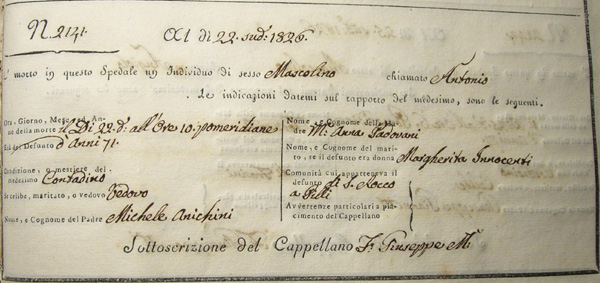 N. 2141.
Al di 22. sud.º 1826.
È morto in questo Spedale un Individuo di sesso Mascolino chiamato Antonio
. Le indicazioni datemi sul rapporto del medesimo, sono le seguenti.
Ora, Giorno, Mese ed An-
no della morte il Di 22. d.º all'Ore 10. pomeridiane
Età del Defunto d'Anni 71.
Condizione, o mestiere del
medesimo Contadino
Se celibe, maritato, o vedovo Vedovo
Nome, e Cognome del Padre Michele Anichini
Nome, e Cognome della Ma-
dre M.ª Anna Padovani
Nome, e Cognome del mari-
to, se il defunto era donna Margherita Innocenti
Comunità cui apparteneva il
defunto di S. Rocco
a Pilli
Avvertenze particolari a pia-
cimento del Cappellano
Sottoscrizione del Cappellano F. Giuseppe M.